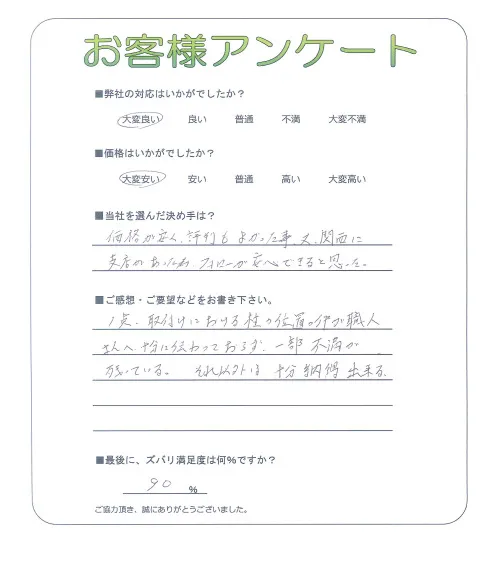 お客様アンケート
■弊社の対応はいかがでしたか？
大変良い 良い 普通 不満 大変不満
■価格はいかがでしたか？
大変安い 安い 普通 高い 大変高い
■当社を選んだ決め手は？
価格が安く、評判もよかった事、又、関西に
支店があったため、フォローが安心できると思った。
■ご感想・ご要望などをお書き下さい。
1点、取付けにおける柱の位置の件が職人
さんへ十分に伝わっておらず、一部不満が
残っている。 それ以外は十分納得出来る。
■最後に、ズバリ満足度は何％ですか？
90 ％
ご協力頂き、誠にありがとうございました。